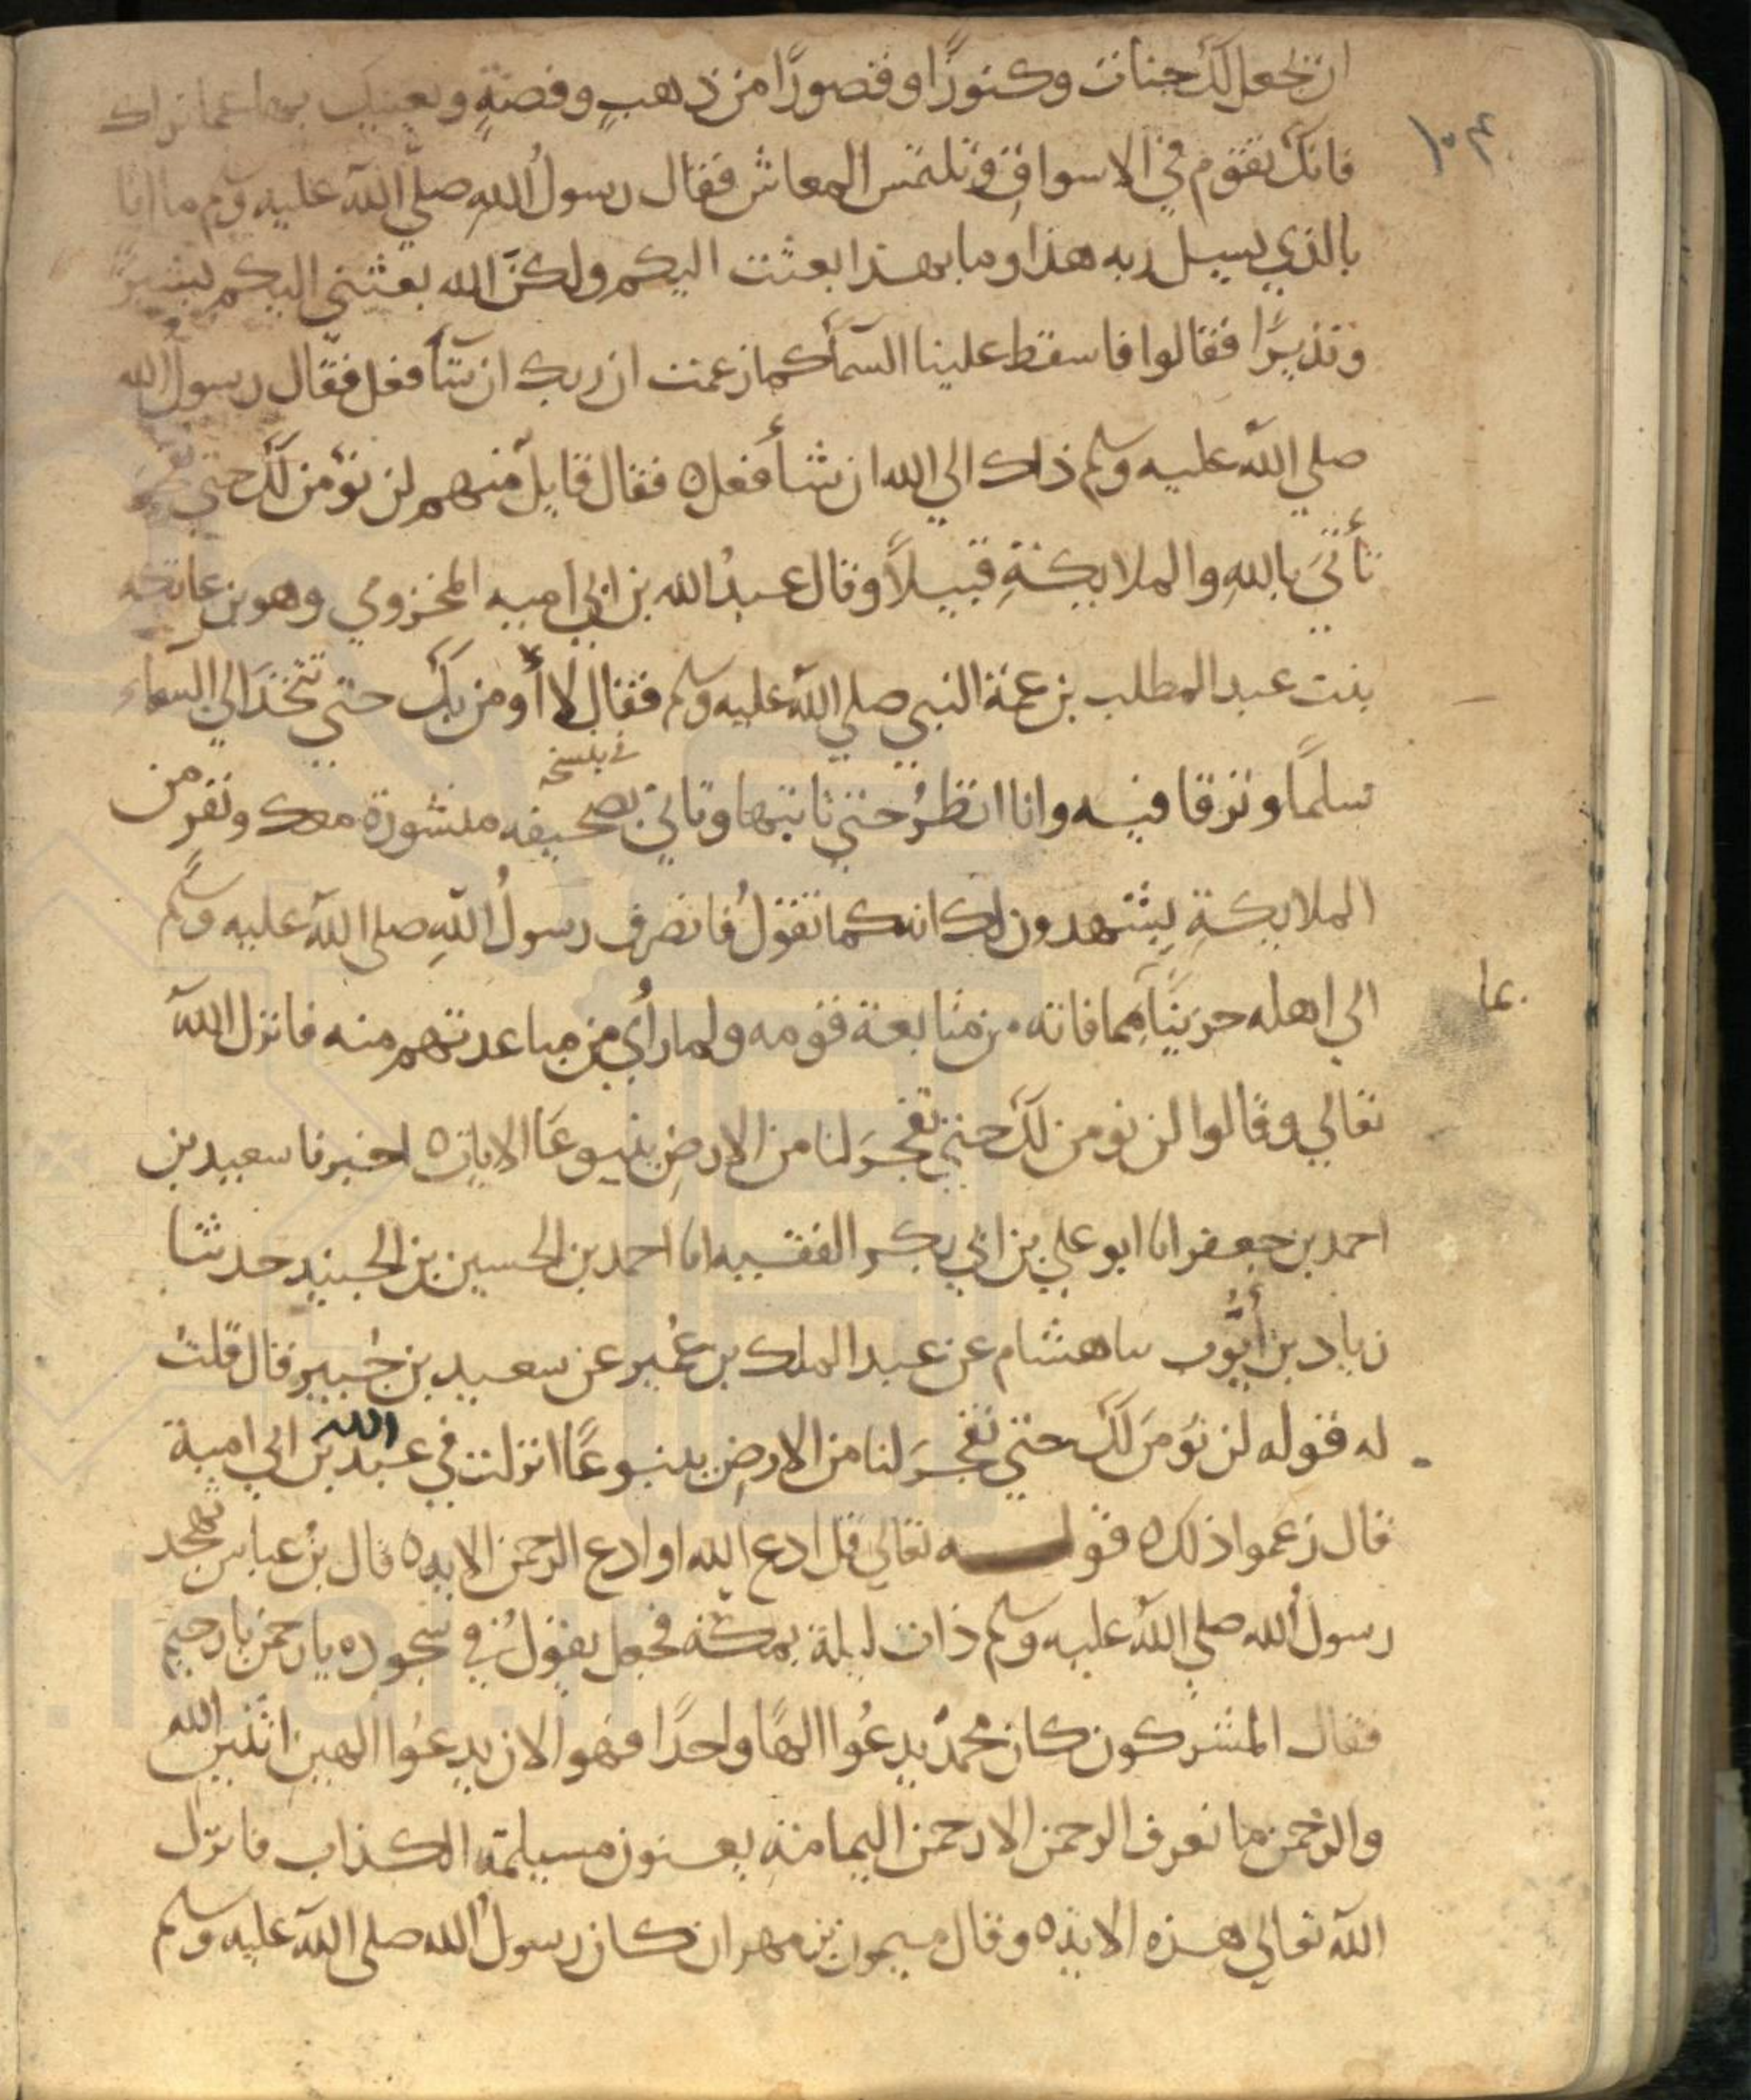 ان يجعل لك جنات وكنوزًا وقصورًا من ذهبٍ وفضةٍ ويعينك بها عما نراك
١٠٣
فانك تقوم في الاسواقِ وتلتمس المعاش فقال رسولُ اللهِ صلي الله عليه وسلم ما انا
بالذي يسيل ربه هذا وما بهذا بعثت اليكم ولكنّ الله بعثني اليكم بشيرًا
ونذيرًا فقالوا فاسقط علينا السمآ كما زعمت ان ربك ان شآ فعل فقال رسول الله
صلي الله عليه وسلم ذاك الي الله ان شأ فعله فقال قايل منهم لن نؤمن لك حتي
تأتيَ باللهِ والملايكةِ قبيلاً وقال عبدُ الله بن ابي اميه المخزومي وهو بن عاتكه
بنت عبد المطلب بن عمة النبي صلي الله عليه وسلم فقال لا أومن بك حتي تتخذَ الي السماء
سلمًا وترقا فيه وانا انظرُ حتي تاتيها وتاتي بصحيفه منشورة معك ونفر من
الملايكةِ يشهدون لك انك كما تقولُ فانصرف رسولُ اللهِ صلي الله عليه وسلم
عا
الي اهله حزينًا مما فاته من متابعة قومه ولما رأي من مباعدتهم منه فانزل الله
تعالي وقالوا لن نومن لك حتي تفجرَ لنا من الارضِ ينبوعًا الايات ه اخبرنا سعيد بن
احمد بن جعفر انا ابو علي بن ابي بكر الفقيه انا احمد بن الحسين بن الجنيد حدثنا
زياد بن أيّوب سا هشام عن عبد الملك بن عُمير عن سعيد بن جُبير قال قلتُ
له قوله لن نؤمنَ لك حتي تفجرَ لنا من الارضِ ينبوعًا انزلت في عبد الله بن ابي امية
قال زعموا ذلك ه قوله تعالي قل ادع الله او ادع الرحمن الايه ه قال بن عباس تهجد
رسولُ الله صلي الله عليه وسلم ذات ليلة بمكة فجعل يقولُ في سجوده يا رحمن يا رحيم
فقال المشركون كان محمدٌ يدعُوا الهًا واحدًا فهو الان يدعُوا الهين اثنين الله
والرحمن ما نعرف الرحمن الا رحمن اليمامة يعنون مسيلمة الكذاب فانزل
الله تعالي هذه الاية ه وقال ميمون بن مهران كان رسولُ الله صلي الله عليه وسلم